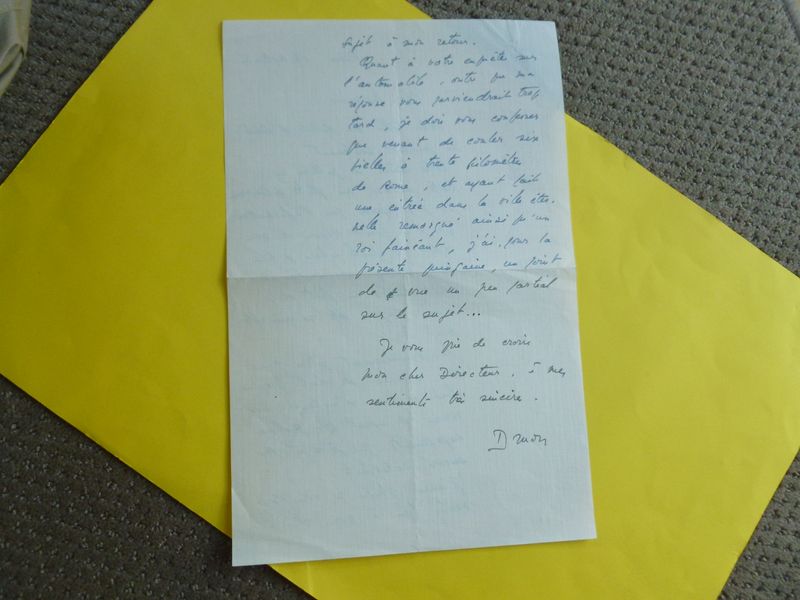 sujet à mon retour.
Quant à votre enquête sur
l'automobile, outre que ma
réponse vous parviendrait trop
tard, je dois vous confesser
que venant de couler six
bielles à trente kilomètres
de Rome, et ayant fait
une entrée dans la ville éter-
nelle remorqué ainsi qu'un
roi fainéant, j'ai, pour la
présente quinzaine, un point
de vue un peu partial
sur le sujet...
Je vous prie de croire
mon cher Directeur, à mes
sentiments très sincères.
Druon